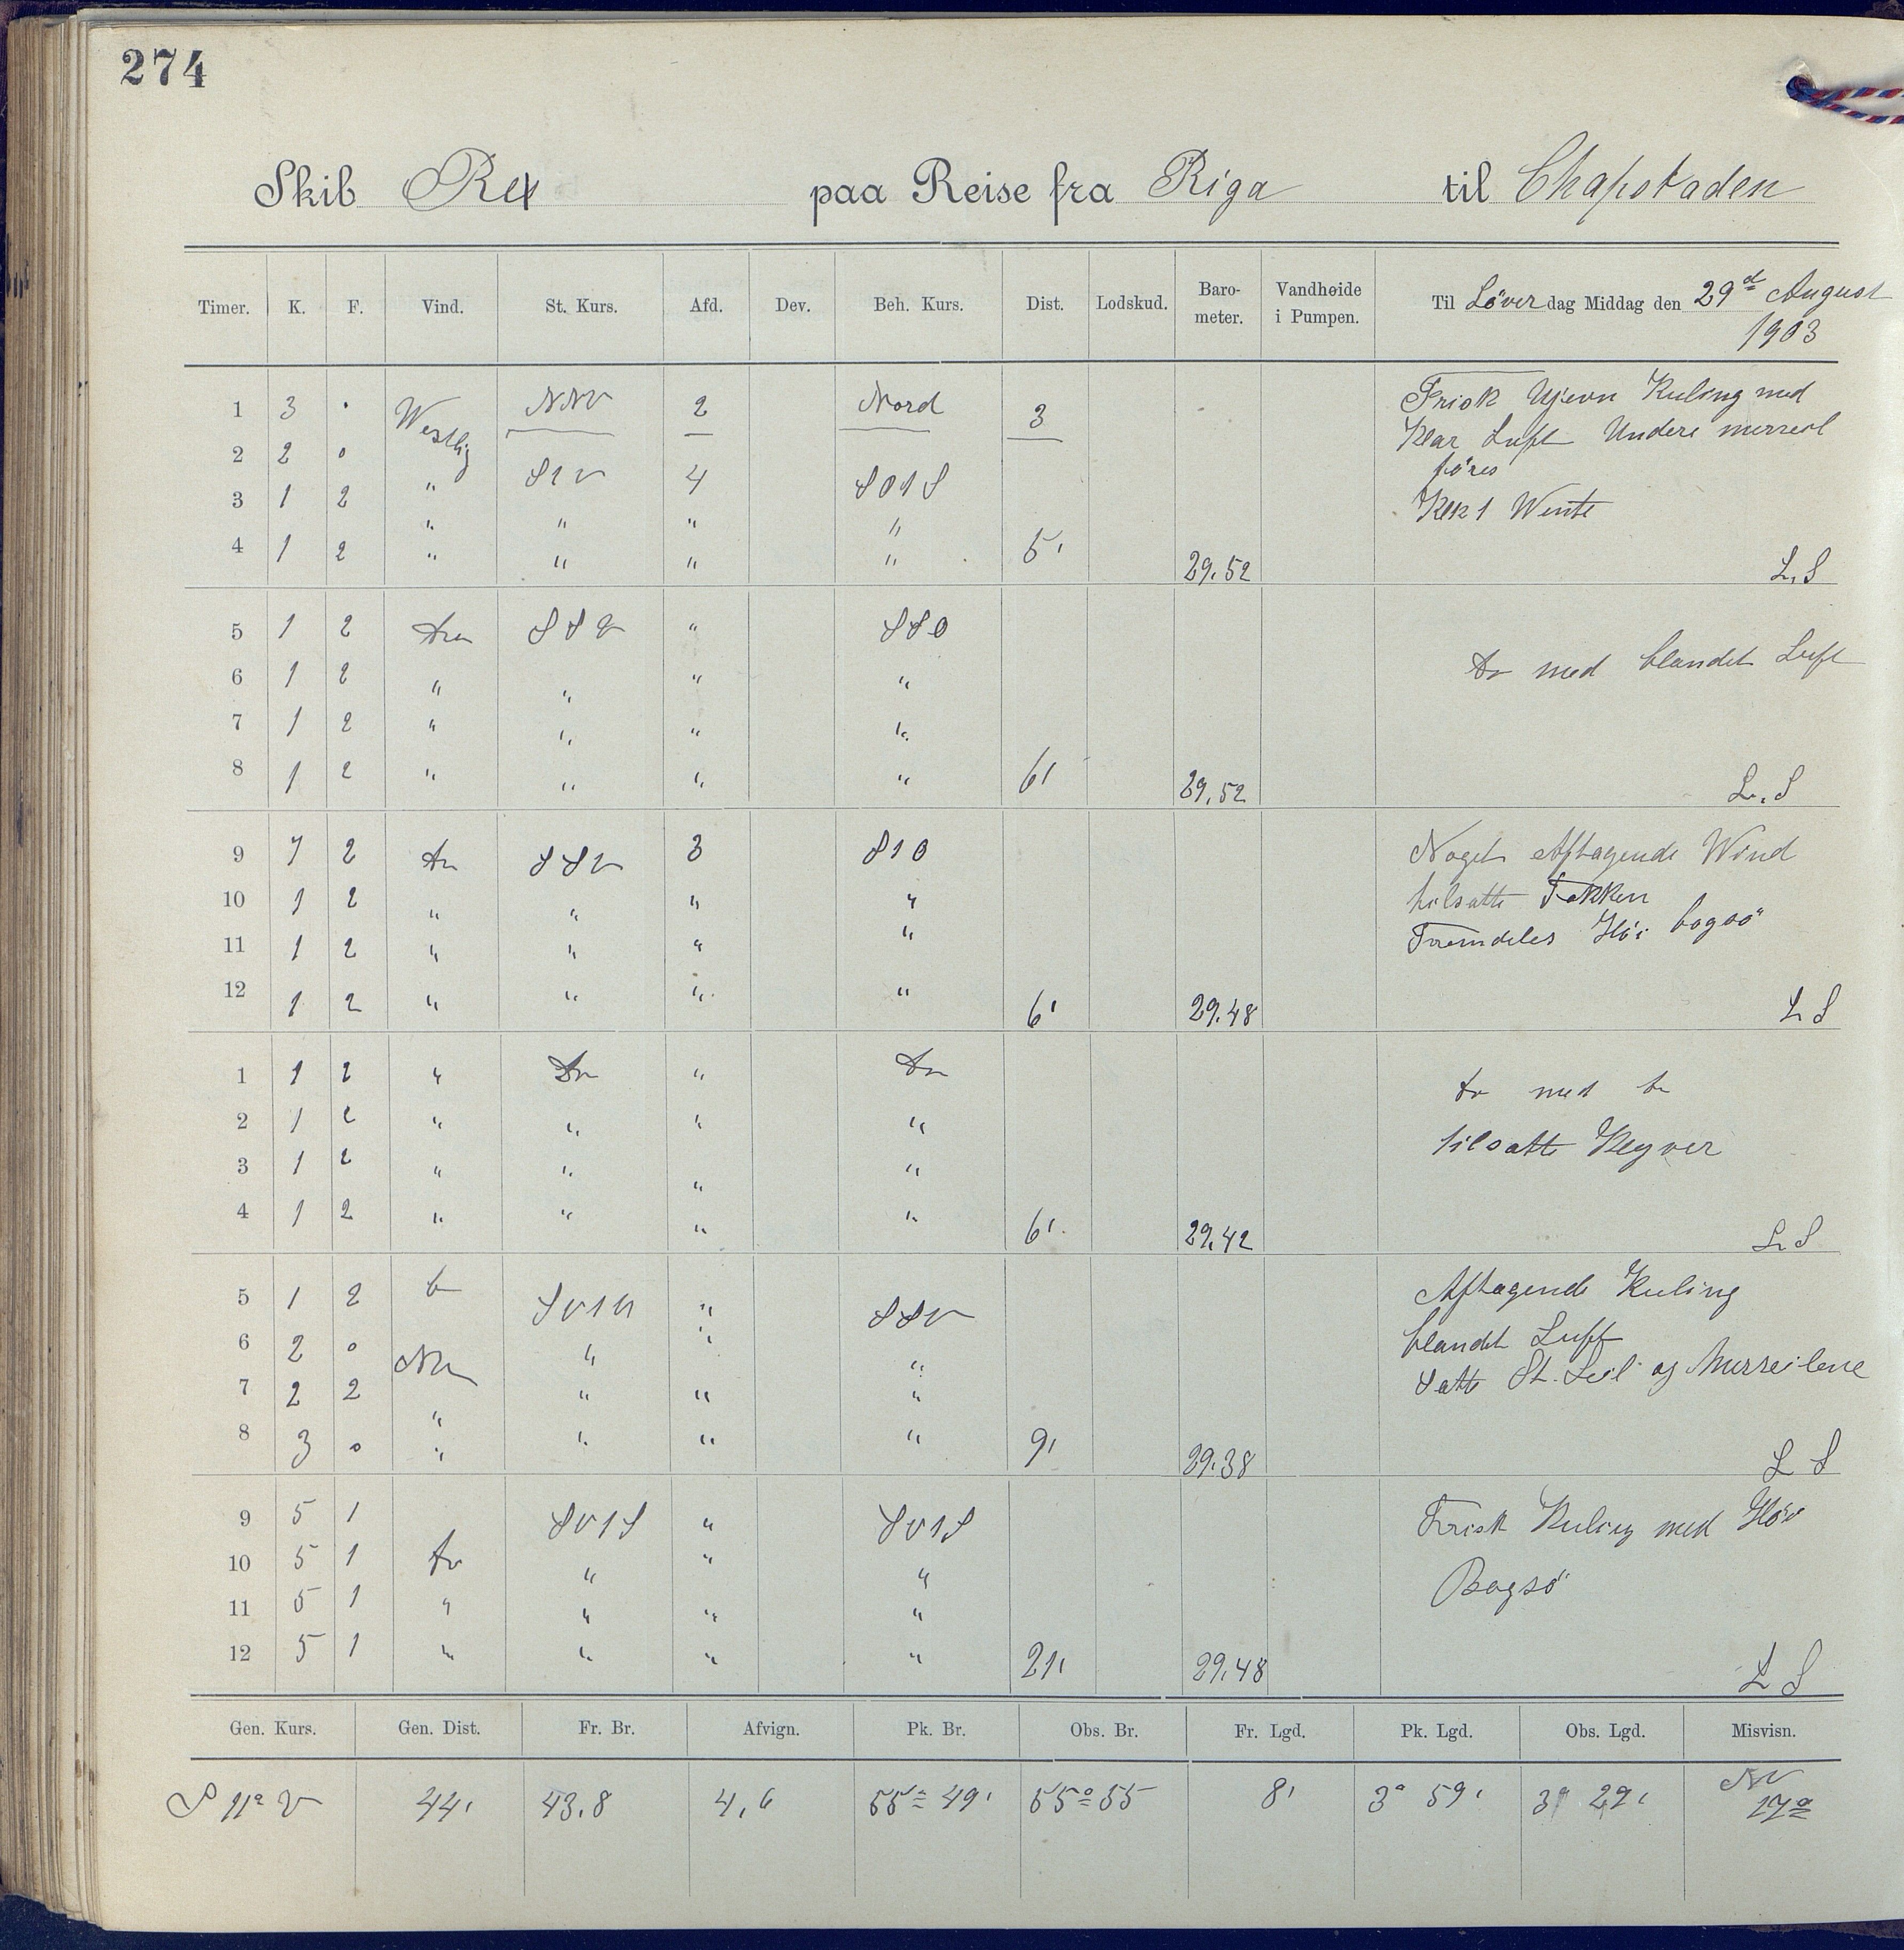 274
Skib Rex paa Reise fra Riga til Chapstaden
Timer. K. F. Vind. St. Kurs. Afd. Dev. Beh. Kurs. Dist. Lodskud. Baro-meter. Vandhøide i Pumpen. Til Löver dag Middag den 29d August 1903
1 3 · Westlig NNV 2 Nord 3 Frisk Ujevn Kuling med
2 2 0 Klar Luft Undere merseil
föres
3 1 2 " S1V 4 SO1S Klk 1 Wente
" " " "
4 1 2 " " " " 5' 29.52 L.S
5 1 2 Do SSV " SSO
6 1 2 " " " " Do med blandet Luft
7 1 2 " " " "
8 1 2 " " " " 6' 29.52 L.S
9 1 2 Do SSV 3 S1O Noget Aftagende Wind
10 1 2 " " " " tilsatte Fokken
11 1 2 " " " " Fremdeles Höi bogsö
12 1 2 " " " " 6' 29.48 L S
1 1 2 " Do " Do do med do
2 1 2 " " " "
3 1 2 " " " " tilsatte Klyver
4 1 2 " " " " 6' 29.42 L S
5 1 2 do SV1V " SSV Aftagende Kuling
6 2 0 " " " blandet Luft
7 2 2 " " " " Satte St. Seil og Merseilene
8 3 0 " " " " 9' 29.38 L S
9 5 1 SV1S " SV1S Frisk Kuling med Höi
10 5 1 do " " " Bogsö
11 5 1 " " " "
12 5 1 " " " " 21' 29.48 L S
Gen. Kurs. Gen. Dist. Fr. Br. Afvign. Pk. Br. Obs. Br. Fr. Lgd. Pk. Lgd. Obs. Lgd. Misvisn.
S 11° V 44' 43.8 4,6 55° 49' 55° 55 8' 3° 59' 3° 29' NV 17°